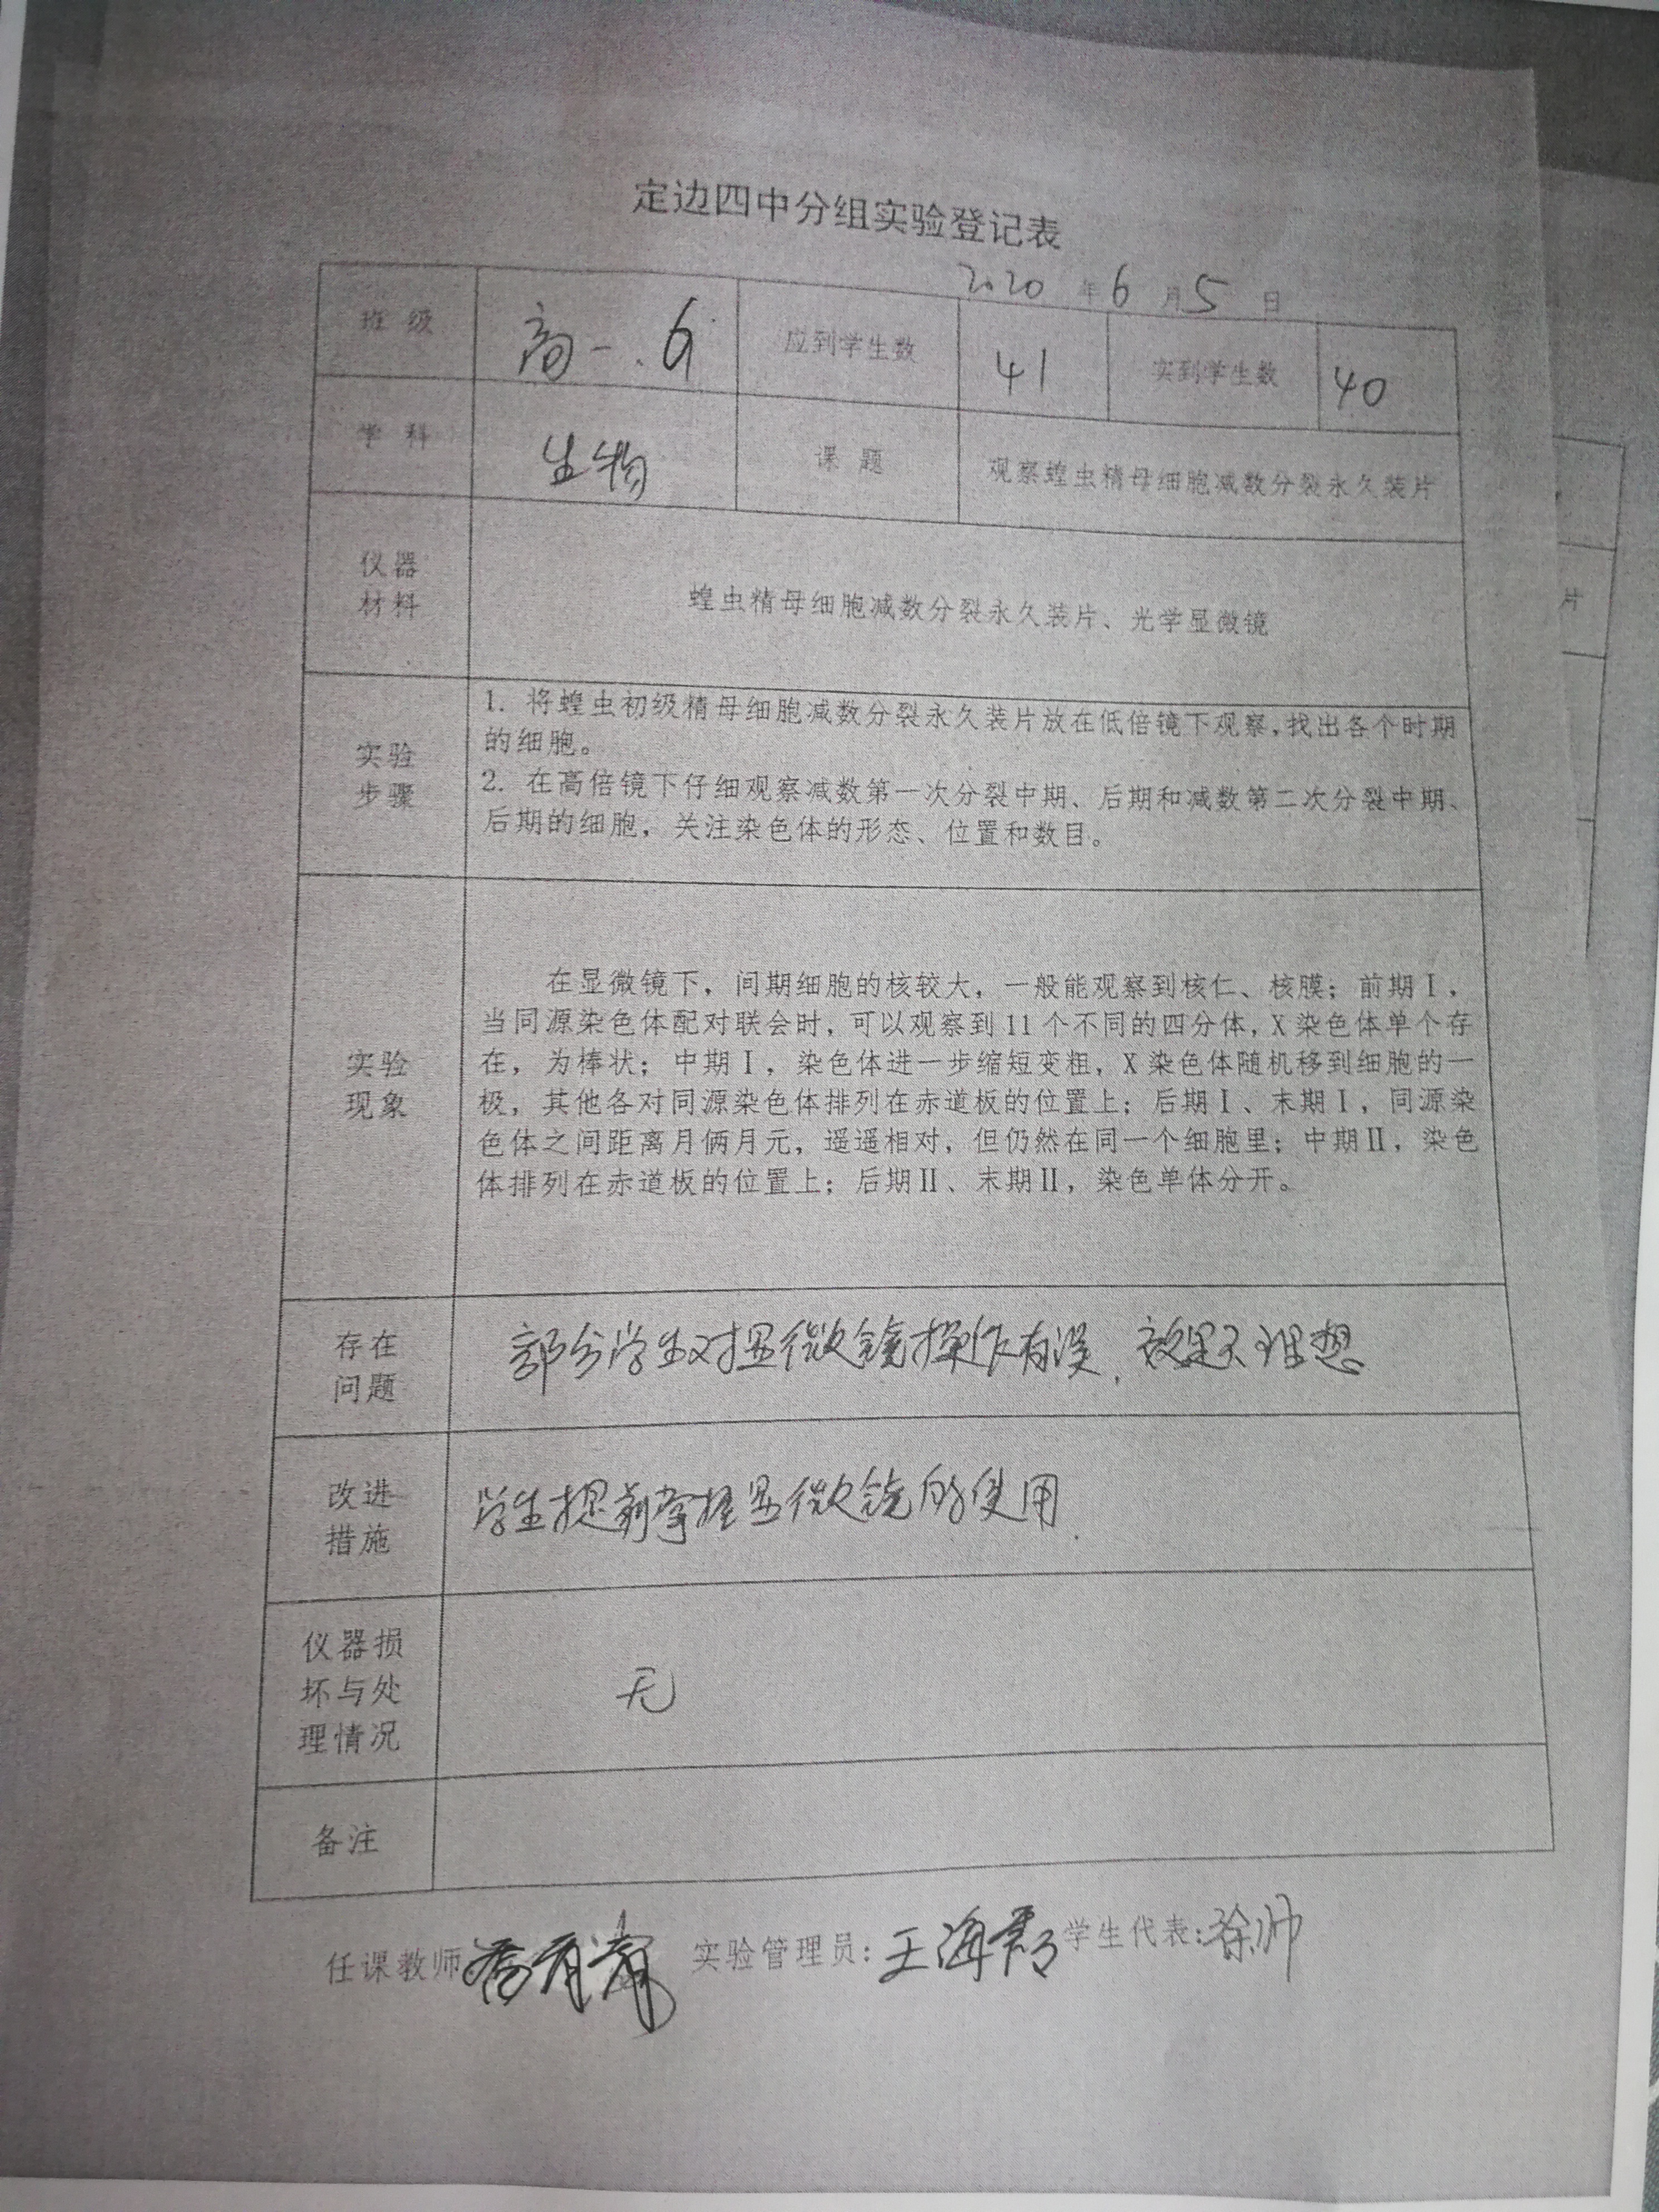 定边四中分组实验登记表
2020 年 6 月 5 日
班 级 高一.6 应到学生数 41 实到学生数 40
学 科 生物 课 题 观察蝗虫精母细胞减数分裂永久装片
仪器
材料
蝗虫精母细胞减数分裂永久装片、光学显微镜
实验
步骤
1. 将蝗虫初级精母细胞减数分裂永久装片放在低倍镜下观察,找出各个时期
的细胞。
2. 在高倍镜下仔细观察减数第一次分裂中期、后期和减数第二次分裂中期、
后期的细胞，关注染色体的形态、位置和数目。
实验
现象
在显微镜下，间期细胞的核较大，一般能观察到核仁、核膜；前期Ⅰ，
当同源染色体配对联会时，可以观察到11个不同的四分体，X染色体单个存
在，为棒状；中期Ⅰ，染色体进一步缩短变粗，X染色体随机移到细胞的一
极，其他各对同源染色体排列在赤道板的位置上；后期Ⅰ、末期Ⅰ，同源染
色体之间距离月俩月元，遥遥相对，但仍然在同一个细胞里；中期Ⅱ，染色
体排列在赤道板的位置上；后期Ⅱ、末期Ⅱ，染色单体分开。
存在
问题
部分学生对显微镜操作有误，效果不理想
改进
措施
学生提前掌握显微镜的使用.
仪器损
坏与处
理情况
无
备注
任课教师 实验管理员: 王海 学生代表:徐帅
片